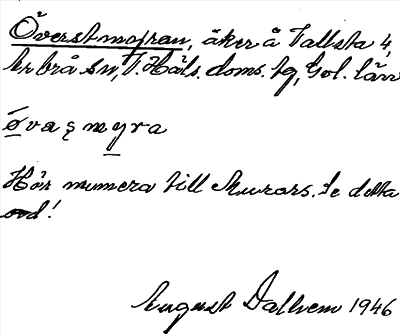 Överstmofran, åker å Vallsta 4,
Arbrå sn, V. Häls. doms. tg, Gol. lärr
øvaşmyra
Hör numera till Murars. Se detta
ord!
August Dallrem 1946